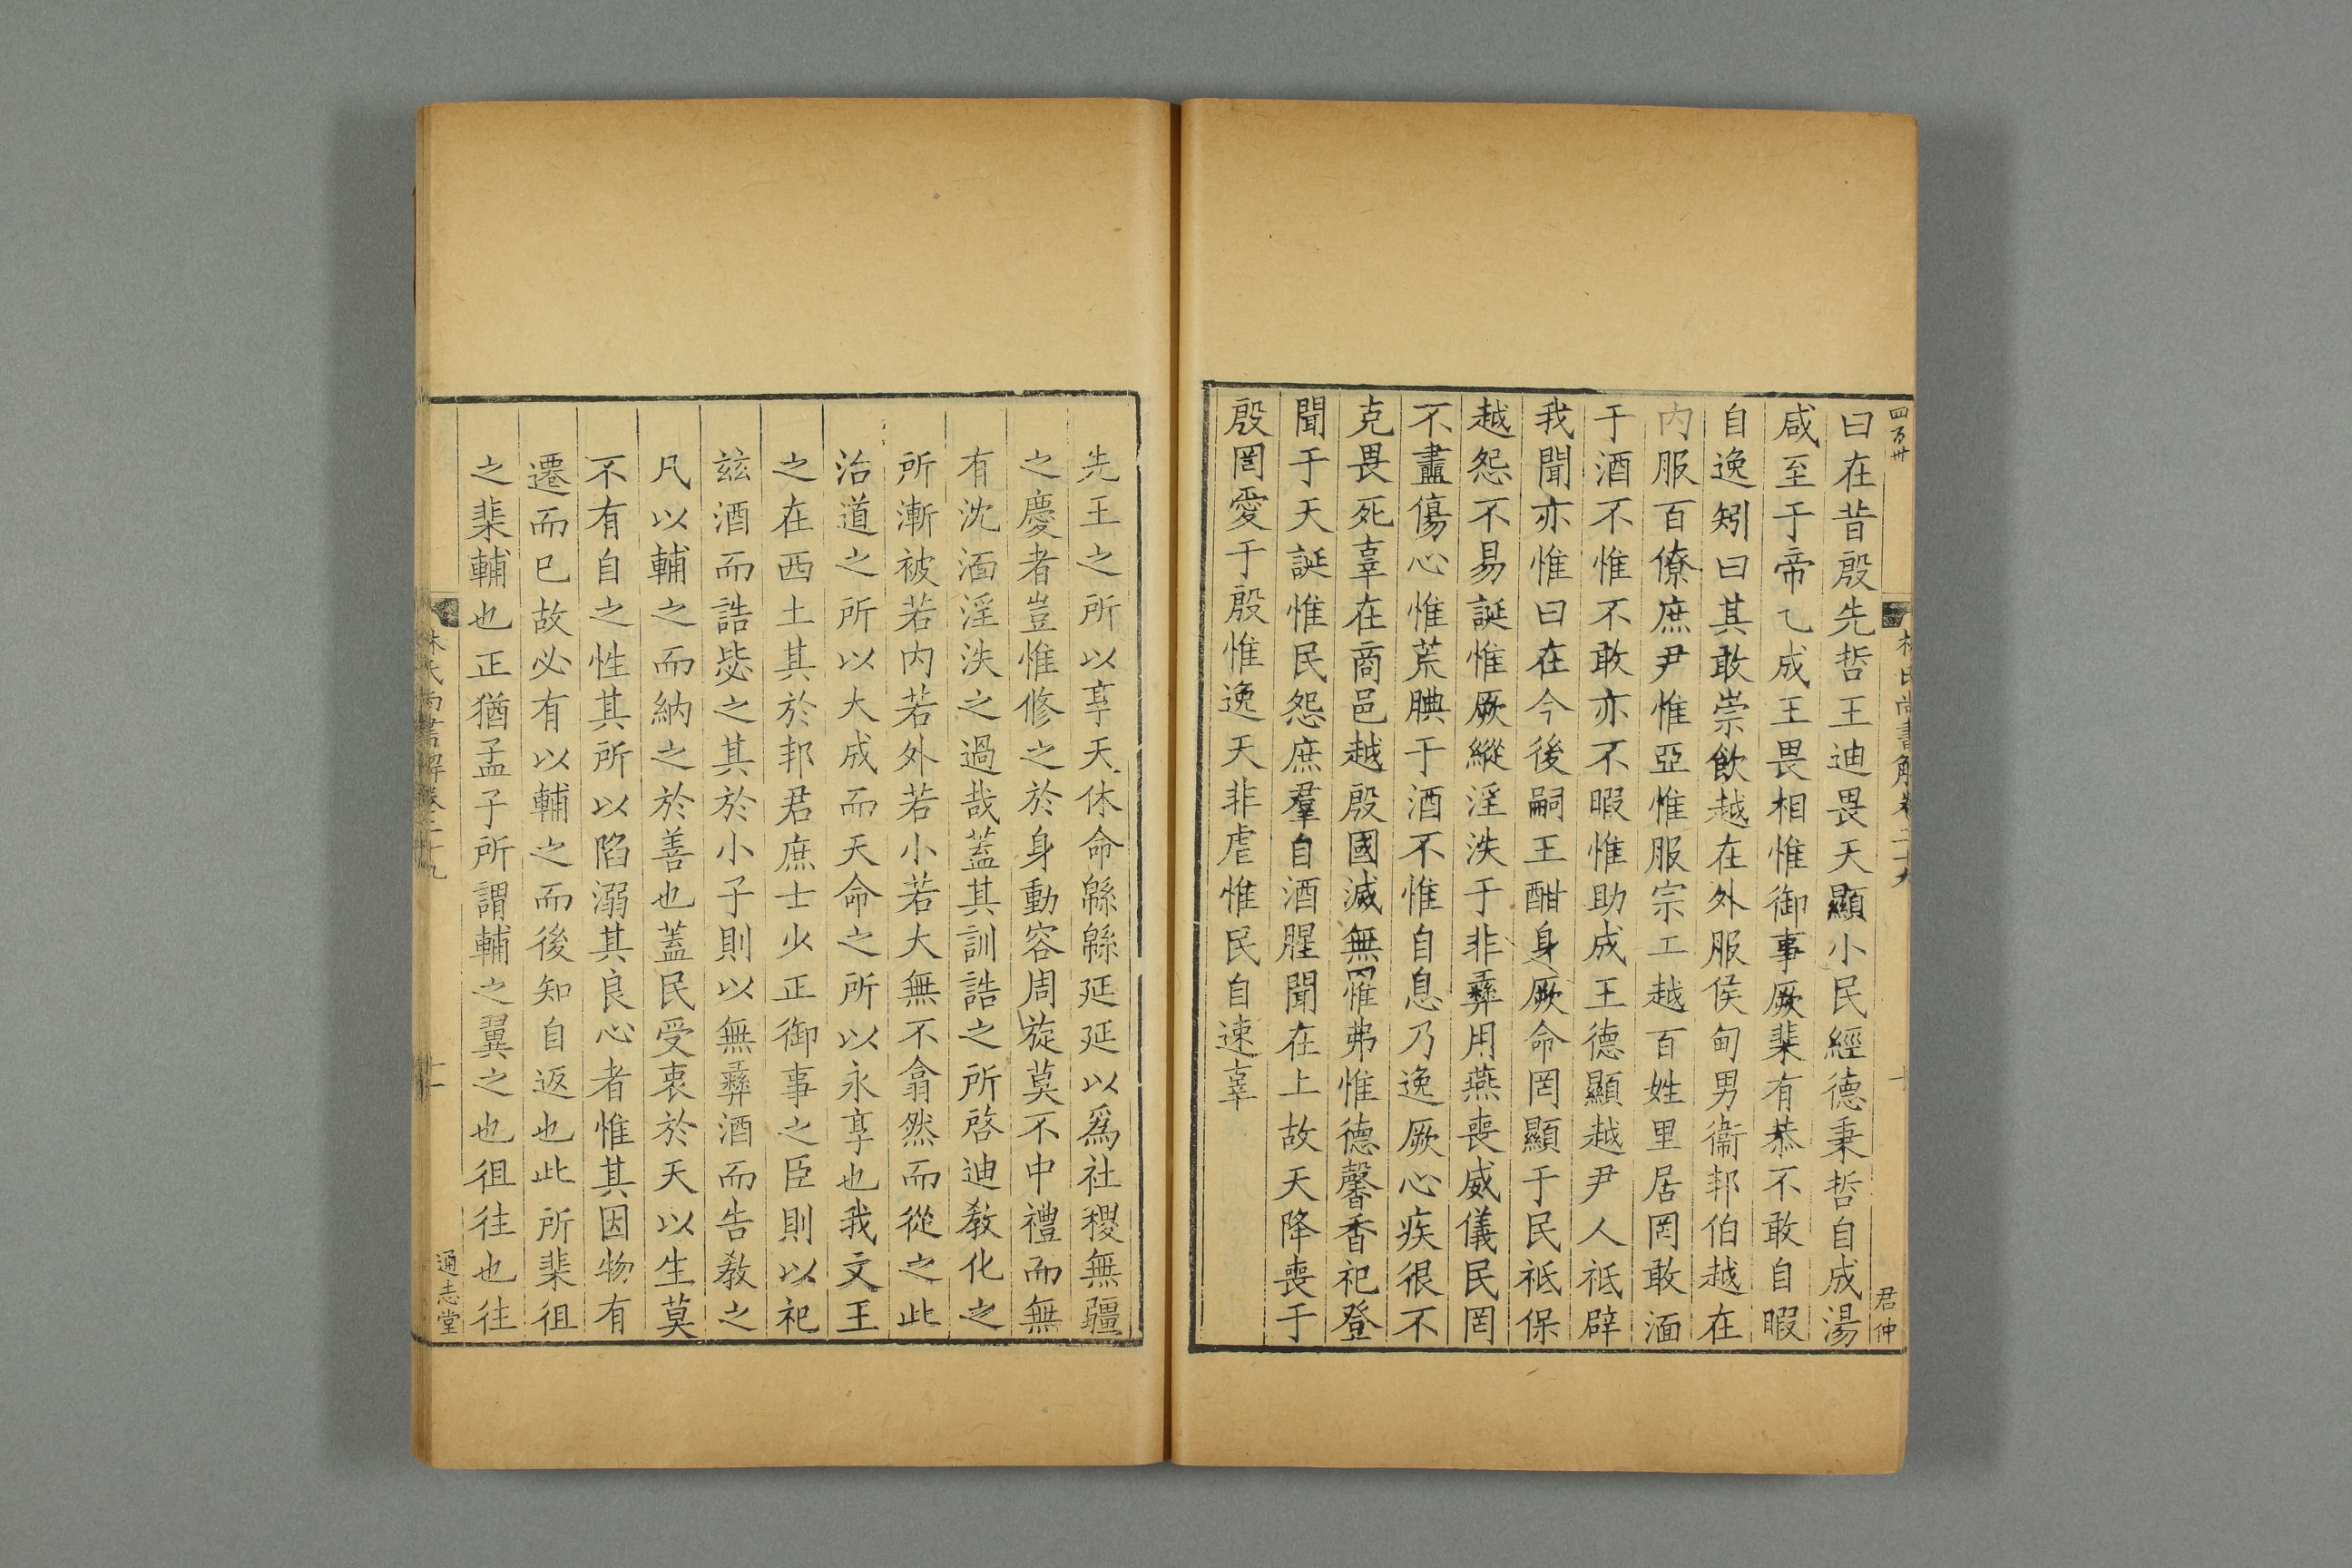 四百卅
林氏尚書解卷二十九
十
君仲
曰在昔殷先哲王迪畏天顯小民經德秉哲自成湯
咸至于帝乙成王畏相惟御事厥棐有恭不敢自暇
自逸矧曰其敢崇飲越在外服侯甸男衞邦伯越在
内服百僚庶尹惟亞惟服宗工越百姓里居罔敢湎
于酒不惟不敢亦不暇惟助成王德顯越尹人祗辟
我聞亦惟曰在今後嗣王酣身厥命罔顯于民祗保
越怨不易誕惟厥縱淫泆于非彝用燕喪威儀民罔
不盡傷心惟荒腆于酒不惟自息乃逸厥心疾很不
克畏死辜在商邑越殷國滅無罹弗惟德馨香祀登
聞于天誕惟民怨庶羣自酒腥聞在上故天降喪于
殷罔愛于殷惟逸天非虐惟民自速辜
先王之所以享天休命緜緜延延以爲社稷無疆
之慶者豈惟修之於身動容周旋莫不中禮而無
有沈湎淫泆之過哉蓋其訓誥之所啓迪教化之
所漸被若内若外若小若大無不翕然而從之此
治道之所以大成而天命之所以永享也我文王
之在西土其於邦君庶士少正御事之臣則以祀
兹酒而誥毖之其於小子則以無彝酒而告教之
凡以輔之而納之於善也蓋民受衷於天以生莫
不有自之性其所以陷溺其良心者惟其因物有
遷而已故必有以輔之而後知自返也此所棐徂
之棐輔也正猶孟子所謂輔之翼之也徂往也往
林氏尚書解卷二十九
十一
通志堂